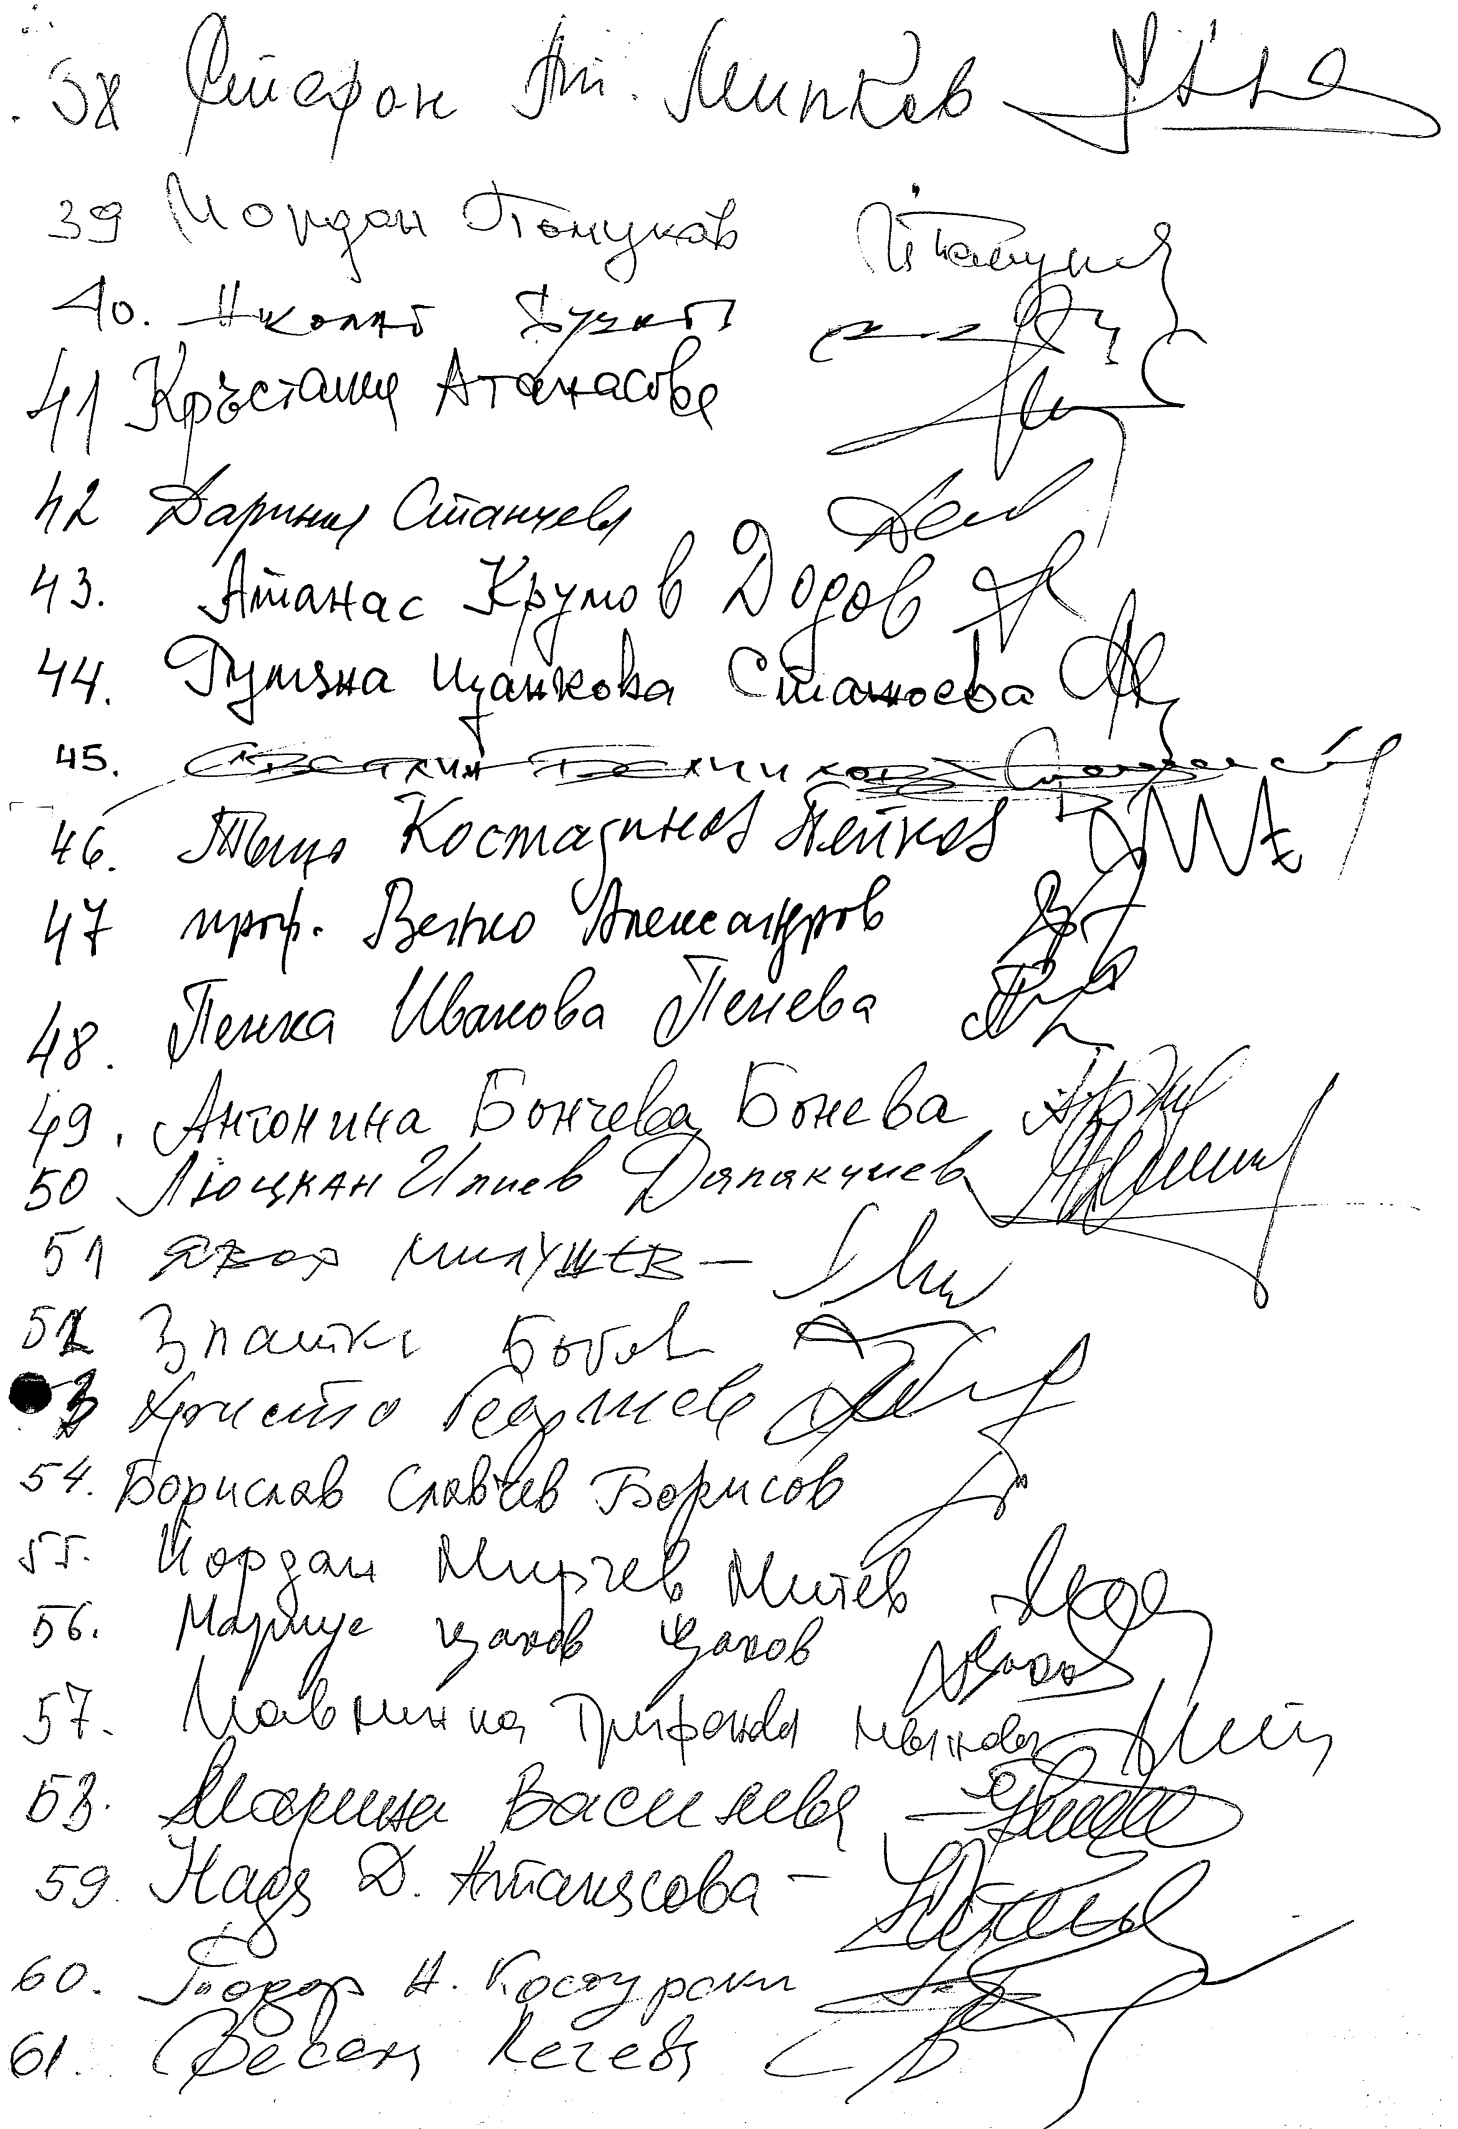 38 Стефан Ат. Минков
39 Йордан Помуков
40. Николай
41 Кръстана Атанасова
42 Дарина Станчева
43. Атанас Крумов Додов
44. Румяна Цанкова Станоева
45.
46. Тошо Костадинов Пейков
47 проф. Венко Александров
48. Пенка Иванова Пенева
49. Антонина Бончева Бонева
50 Люцкан Илиев Даракчиев
51 Явор Милушев –
52 Златка
3 Христо Георгиев
54. Борислав Славчев Борисов
55. Йордан Мирчев Митев
56. Мариус Цаков Цаков
57. Трифонова
58. Марина Василева –
59. Надя Д. Атанасова –
60. Тодор Н. Костурски
61. Весела